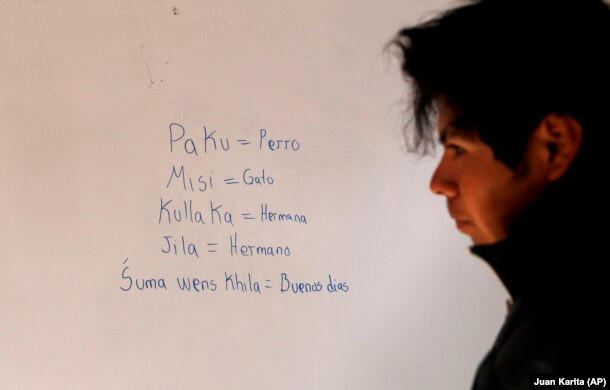 Paku = Perro
Misi = Gato
Kulla Ka = Hermana
Jila = Hermano
Śuma wens Khila = Buenos dias
Juan Karita (AP)